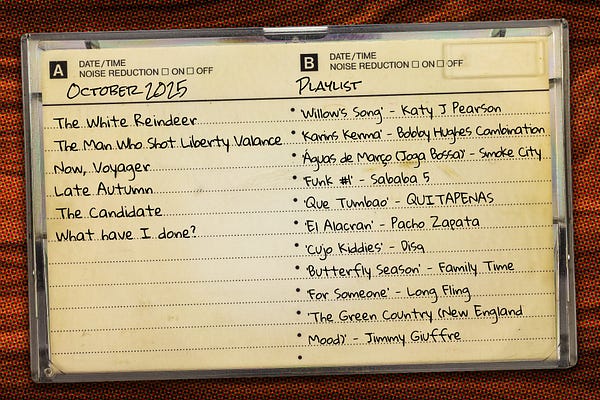 A DATE/TIME
NOISE REDUCTION ☐ ON ☐ OFF
October 2025
The White Reindeer
The Man Who Shot Liberty Valance
Now, Voyager
Late Autumn
The Candidate
What have I done?
B DATE/TIME
NOISE REDUCTION ☐ ON ☐ OFF
Playlist
• 'Willow's Song' - Katy J Pearson
• 'Karins Kerma' - Bobby Hughes Combination
• 'Águas de Março (Joga Bossa)' - Smoke City
• 'Funk #1' - Sababa 5
• 'Que Tumbao' - QUITAPENAS
• 'El Alacran' - Pacho Zapata
• 'Cujo Kiddies' - Disq
• 'Butterfly Season' - Family Time
• 'For Someone' - Long Fling
• 'The Green Country (New England
Mood)' - Jimmy Giuffre
•